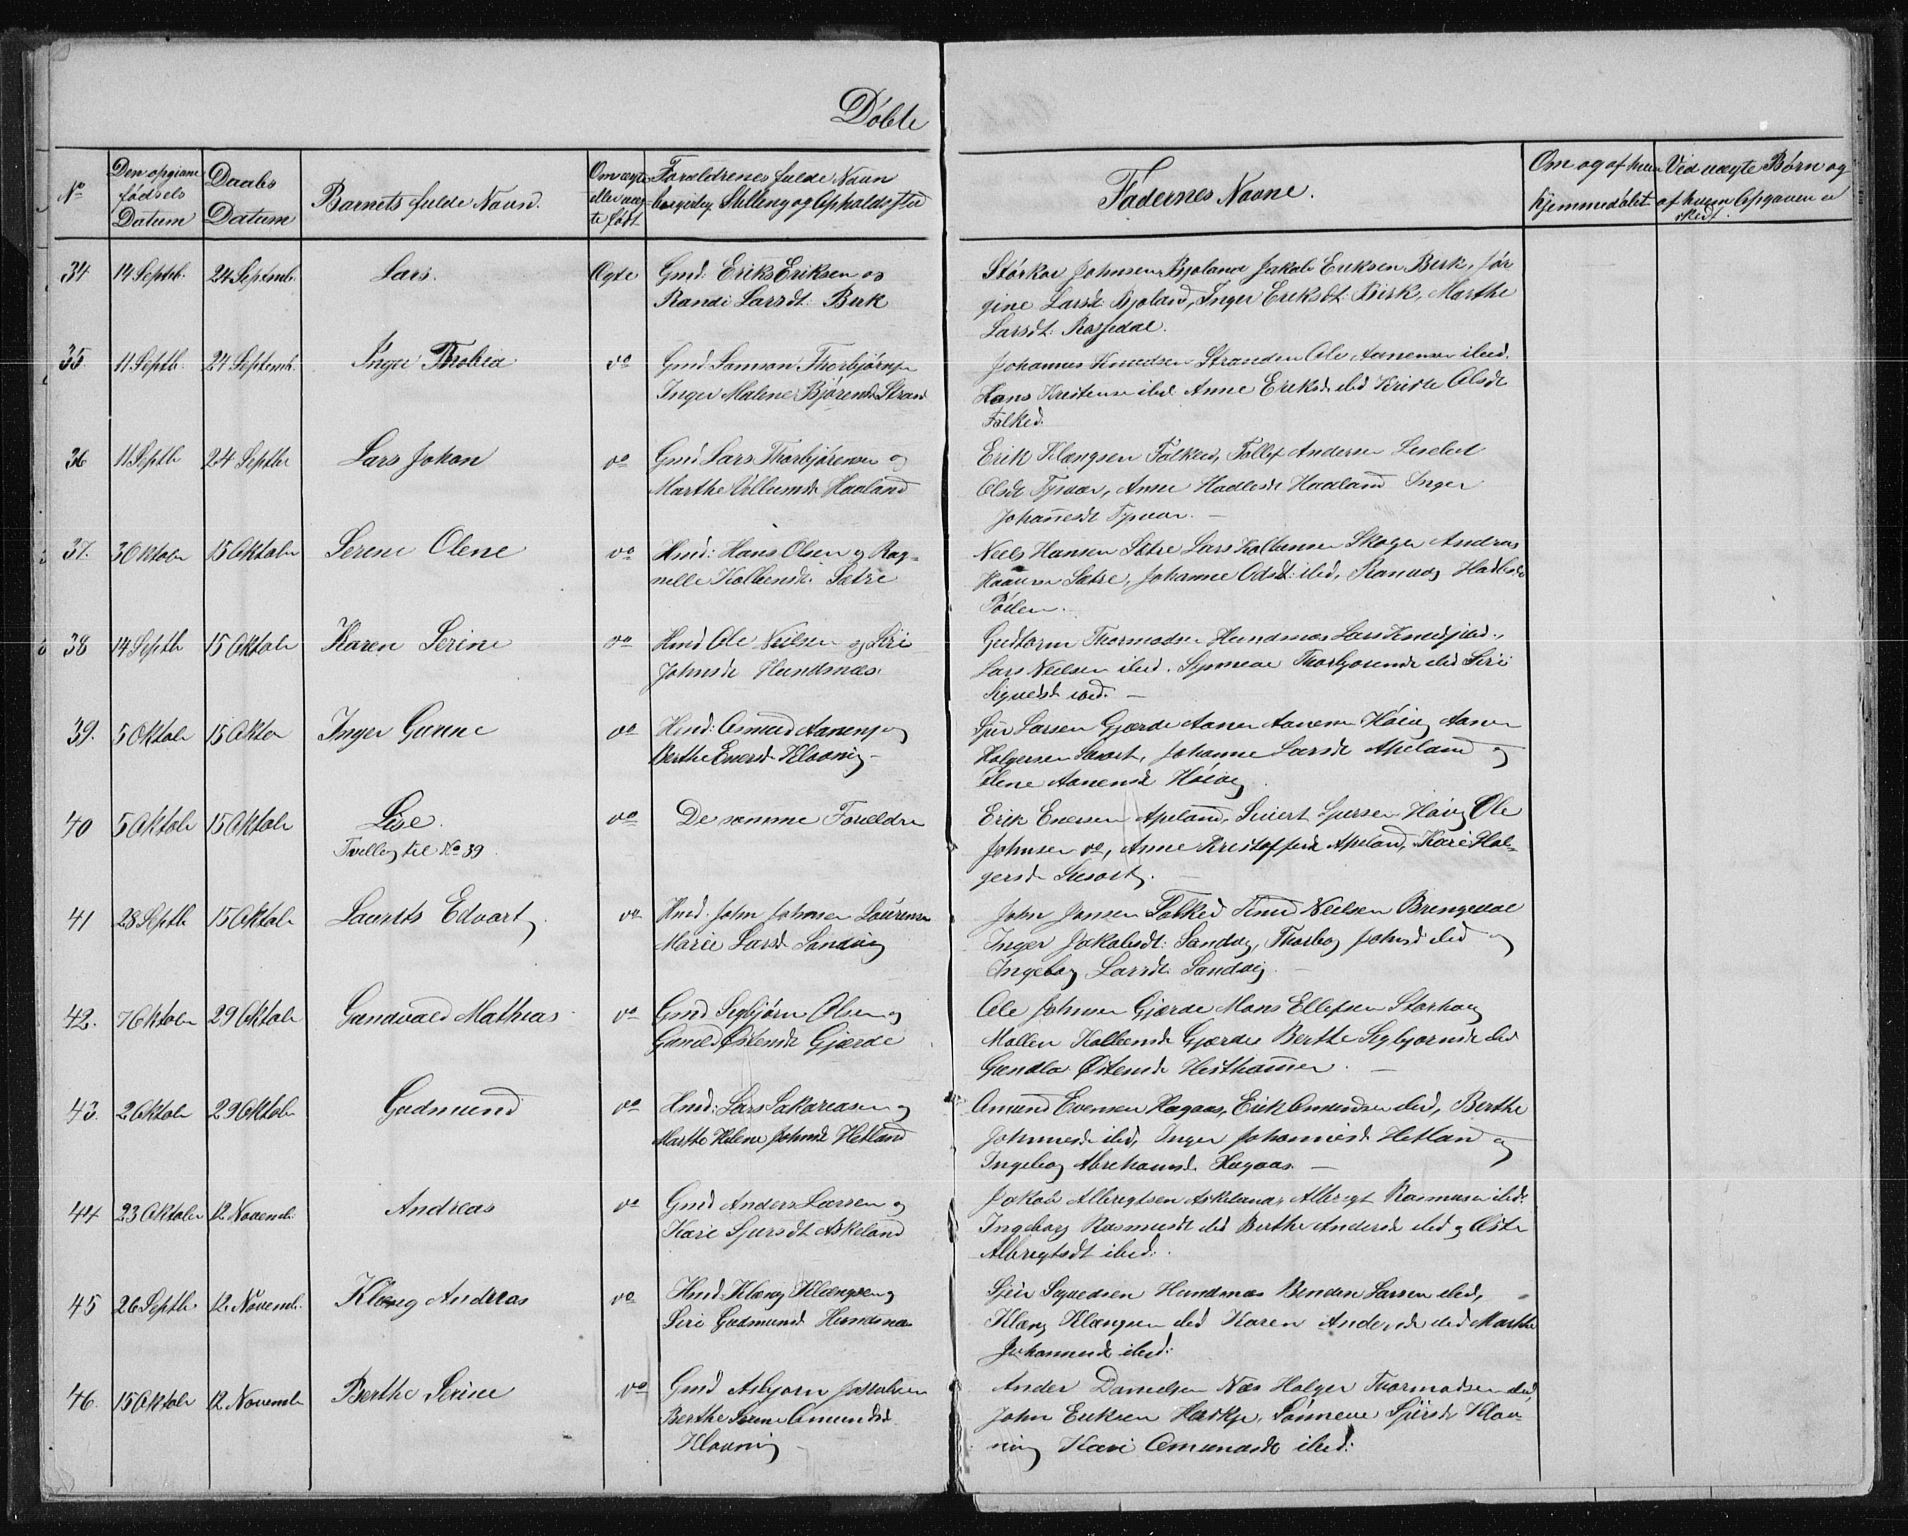 Döbte
No
Den opgivne fødsels Datum
Daabs Datum
Barnets fulde Navn.
Om ægte eller uægte født
Forældrenes fulde Navn borgerlig Stilling og Opholdssted
Faddernes Navne.
Om og af hvem hjemmedøbt
Ved uægte Børn og af hvem Opgaven er skedt.
34 14 Septb. 24 Septemb. Lars. Ægte Gmd: Eriks Eriksen og
Randi Larsdt. Birk
Johnsen Bjoland Jakob Eriksen Birk, Jør
gine Larsd. Bjoland, Inger Eriksdt: Birk, Marthe
Larsdt. Rossedal.
35. 11 Septb. 24 Septemb. Inger Thobia do Gmd Samson Thorbjørns
Inger Malene Bjørensd. Strand
Johannes Knudsen Stranden Ole Aanensen ibid.
Hans Kristense ibid Anne Eriksd ibid Olsdt
Falked.
36 11 Septb 24 Septbr Lars Johan do Gmd Lars Thorbjørensen og
Marthe Villumsd Haaland
Erik Klængsen Falked, Tollef Andersen Lisebet
Olsdt Tysvær, Anne Hadlesd Haaland Inger
Johanesdt Tysvær. —
37. 3 Oktobr 15 Oktobr Serene Olene do Hmd: Hans Olsen og Rag-
nelle Kolbensdt. Sætre
Neels Hansen Sætre Lars Kolbensen Andreas
Sætre, Johanne Odsdt: ibid,

38 14 Septb 15 Oktobr Karen Serine do Hmd Ole Nielsen og Siri
Johnsdt Hundsnæs.
Guttorm Thormodsen Hundsnæs Lars ibid.,
Lars Nielsen ibid. Synneve Thorbjørensdt ibid Siri
Sigvedsdt ibid. —
39. 5 Oktobr 15 Oktbr Inger Gurine do Hmd: Osmund Aanensen og
Berthe Enersdt Klovning —
Sjur Larsen Gjærde Aanen Aanensen Høivig Aanen
Holgersen Johanne Larsdt Apeland og
Elene Aanensdt Høivig.
40 5 Oktobr 15 Oktobr Lise. do De samme Forældre
Tvilling til No 39.
Erik Enersen Apeland, Sivert Sjursen Høivig Ole
Johnsen do, Anne Kristoffersdt Apeland, Kari Hol-
gersdt —
41 28 Septb 15 Oktobr Laurits Edvart do Hmd. John Johnsen Laurense
Marie Larsdt Sandvig
John Jonsen Falked Neelsen Brengedal
Inger Jakobsdt: Sandvig, Thorbor Johnsd ibid og
Ingebog Larsdt Sandvig. —
42. 7 Oktobr 29 Oktobr Gundvald Mathias do Gmd Sigbjørn Olsen og
Østensdt Gjærde
Ole Johnsen Gjærde Mons Ellefsen Storhaug
Mallen Kolbensdt Gjærde Berthe Sigbjørnsdt ibid
Gundla Østensdt Hesthammer. —
43. 2 Oktobr 29 Oktobr Gudmund do Hmd: Lars Sakariasen og
Marthe Helene Johnsdt Hetland
Omund Evensen Hagaas, Erik Omundsen ibid, Berthe
Johnnesdt ibid, Inger Johannesdt Hetland og
Ingebog Abrehamsd. Hagaas. —
44 23 Oktober 12 Novemb. Andreas do Gmd Anders Larsen og
Kari Sjursdt Askeland
Jakob Albregtsen Askeland, Albregt Rasmusen ibid.
Ingeborg Rasmusdt ibid Berthe Andersdt ibid og
Albregtsdt ibid:
45 26 Septb. 12 Novemb. Klæng Andreas do Hmd: Klæng Klængsen og
Siri Gudmunds Hundsnæs
Sjur Sigvedsen Hundsnæs Larsen ibid,
Klæng Klængsen ibid Karen Andersdt ibid Marthe
Johannesdt ibid:
46. 15 Oktobr 12 Novemb Berthe Serine do Gmd Asbjorn Jakobsen
Berthe Serine Omundsd.
Klovning —
Ander Danielsen Næs Holger Thormodsen ibid,
John Eriksen Sønneve Sjursdt Klov-
ning Kari Omundsdt ibid: